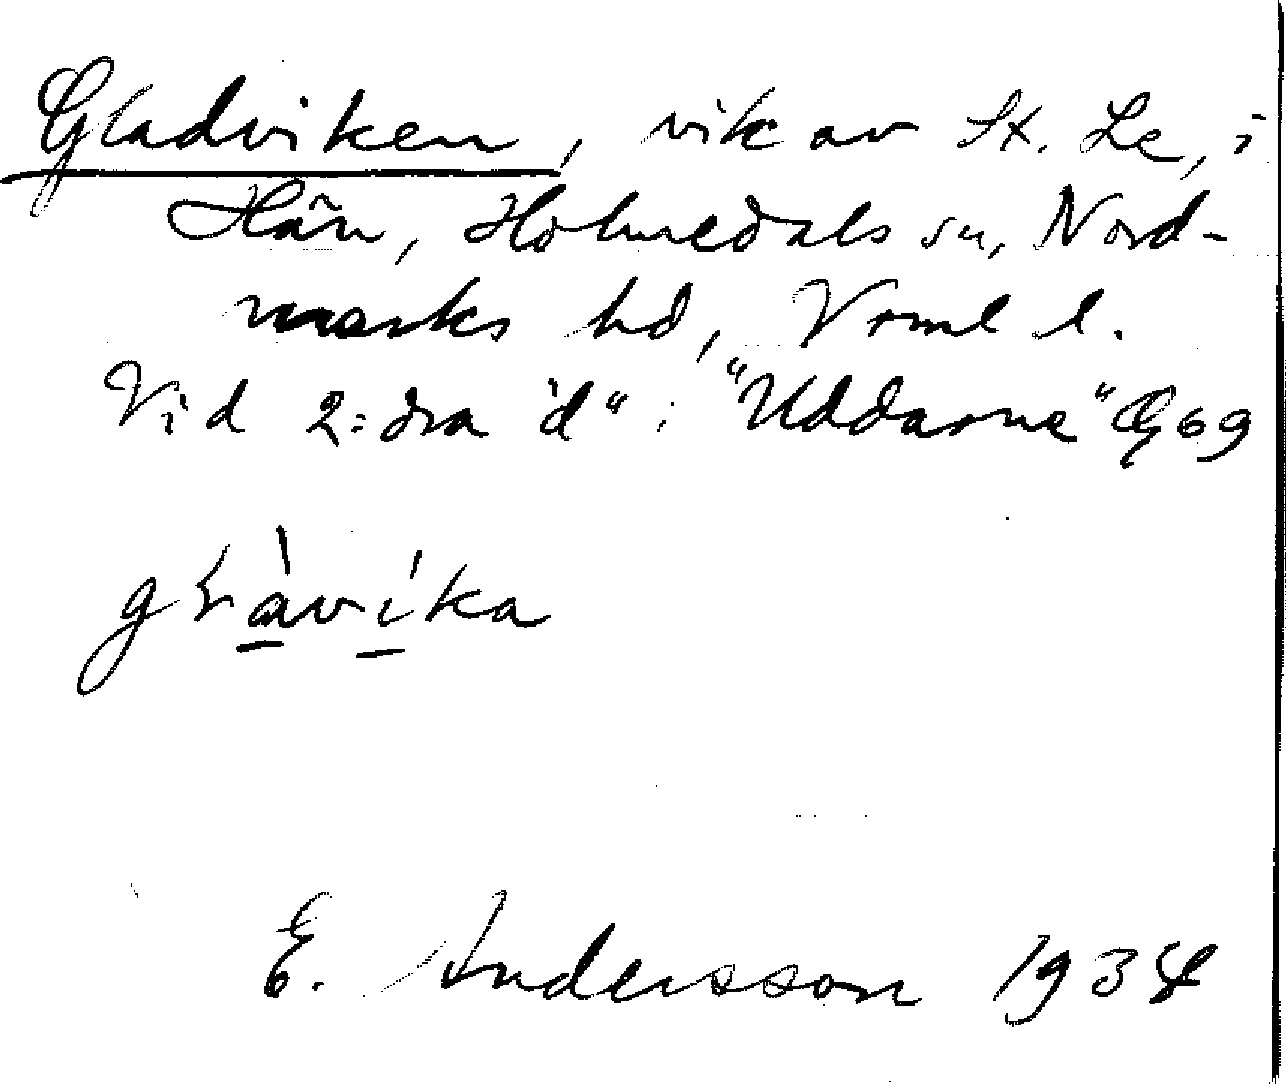 Gladviken, vik av St. Le, i
Hän, Holmedals sn, Nord-
marks hd, Vrml l.
Vid 2:dra "d" i "Uddarne" G 69
gɫàvíka
E. Andersson 1934